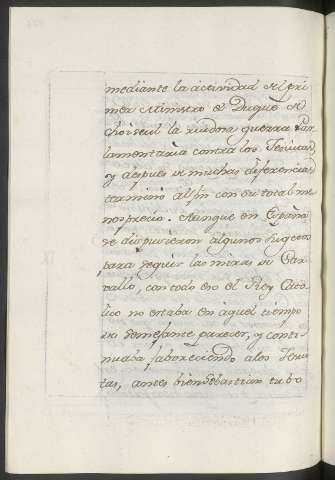 mediante la actividad del pri
mer Ministro el Duque de
Choiseul la guerra Par
lamentaria contra los Jesuitas,
y despues de muchas diferencias
termino al fin con su total me
nosprecio. Aunque en España
se dispusieron algunos sugetos
para seguir las miras de Car
vallo, con todo eso el Rey Cato
lico no estaba en aquel tiempo
de semejante parecer, y conti
nuaba faboreciendo a los Jesui
tas, antes bien Sebastian tubo